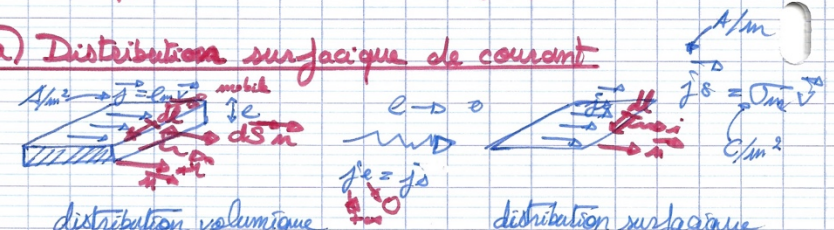 a) Distribution surfacique de courant
A/m
A/m² → j⃗ = ρm v⃗
mobile
e
dl
dS n⃗
n⃗
e → 0
je = js
+∞ 0
j⃗s
dl
n⃗
j⃗s = σm v⃗
C/m²
distribution volumique
distribution surfacique